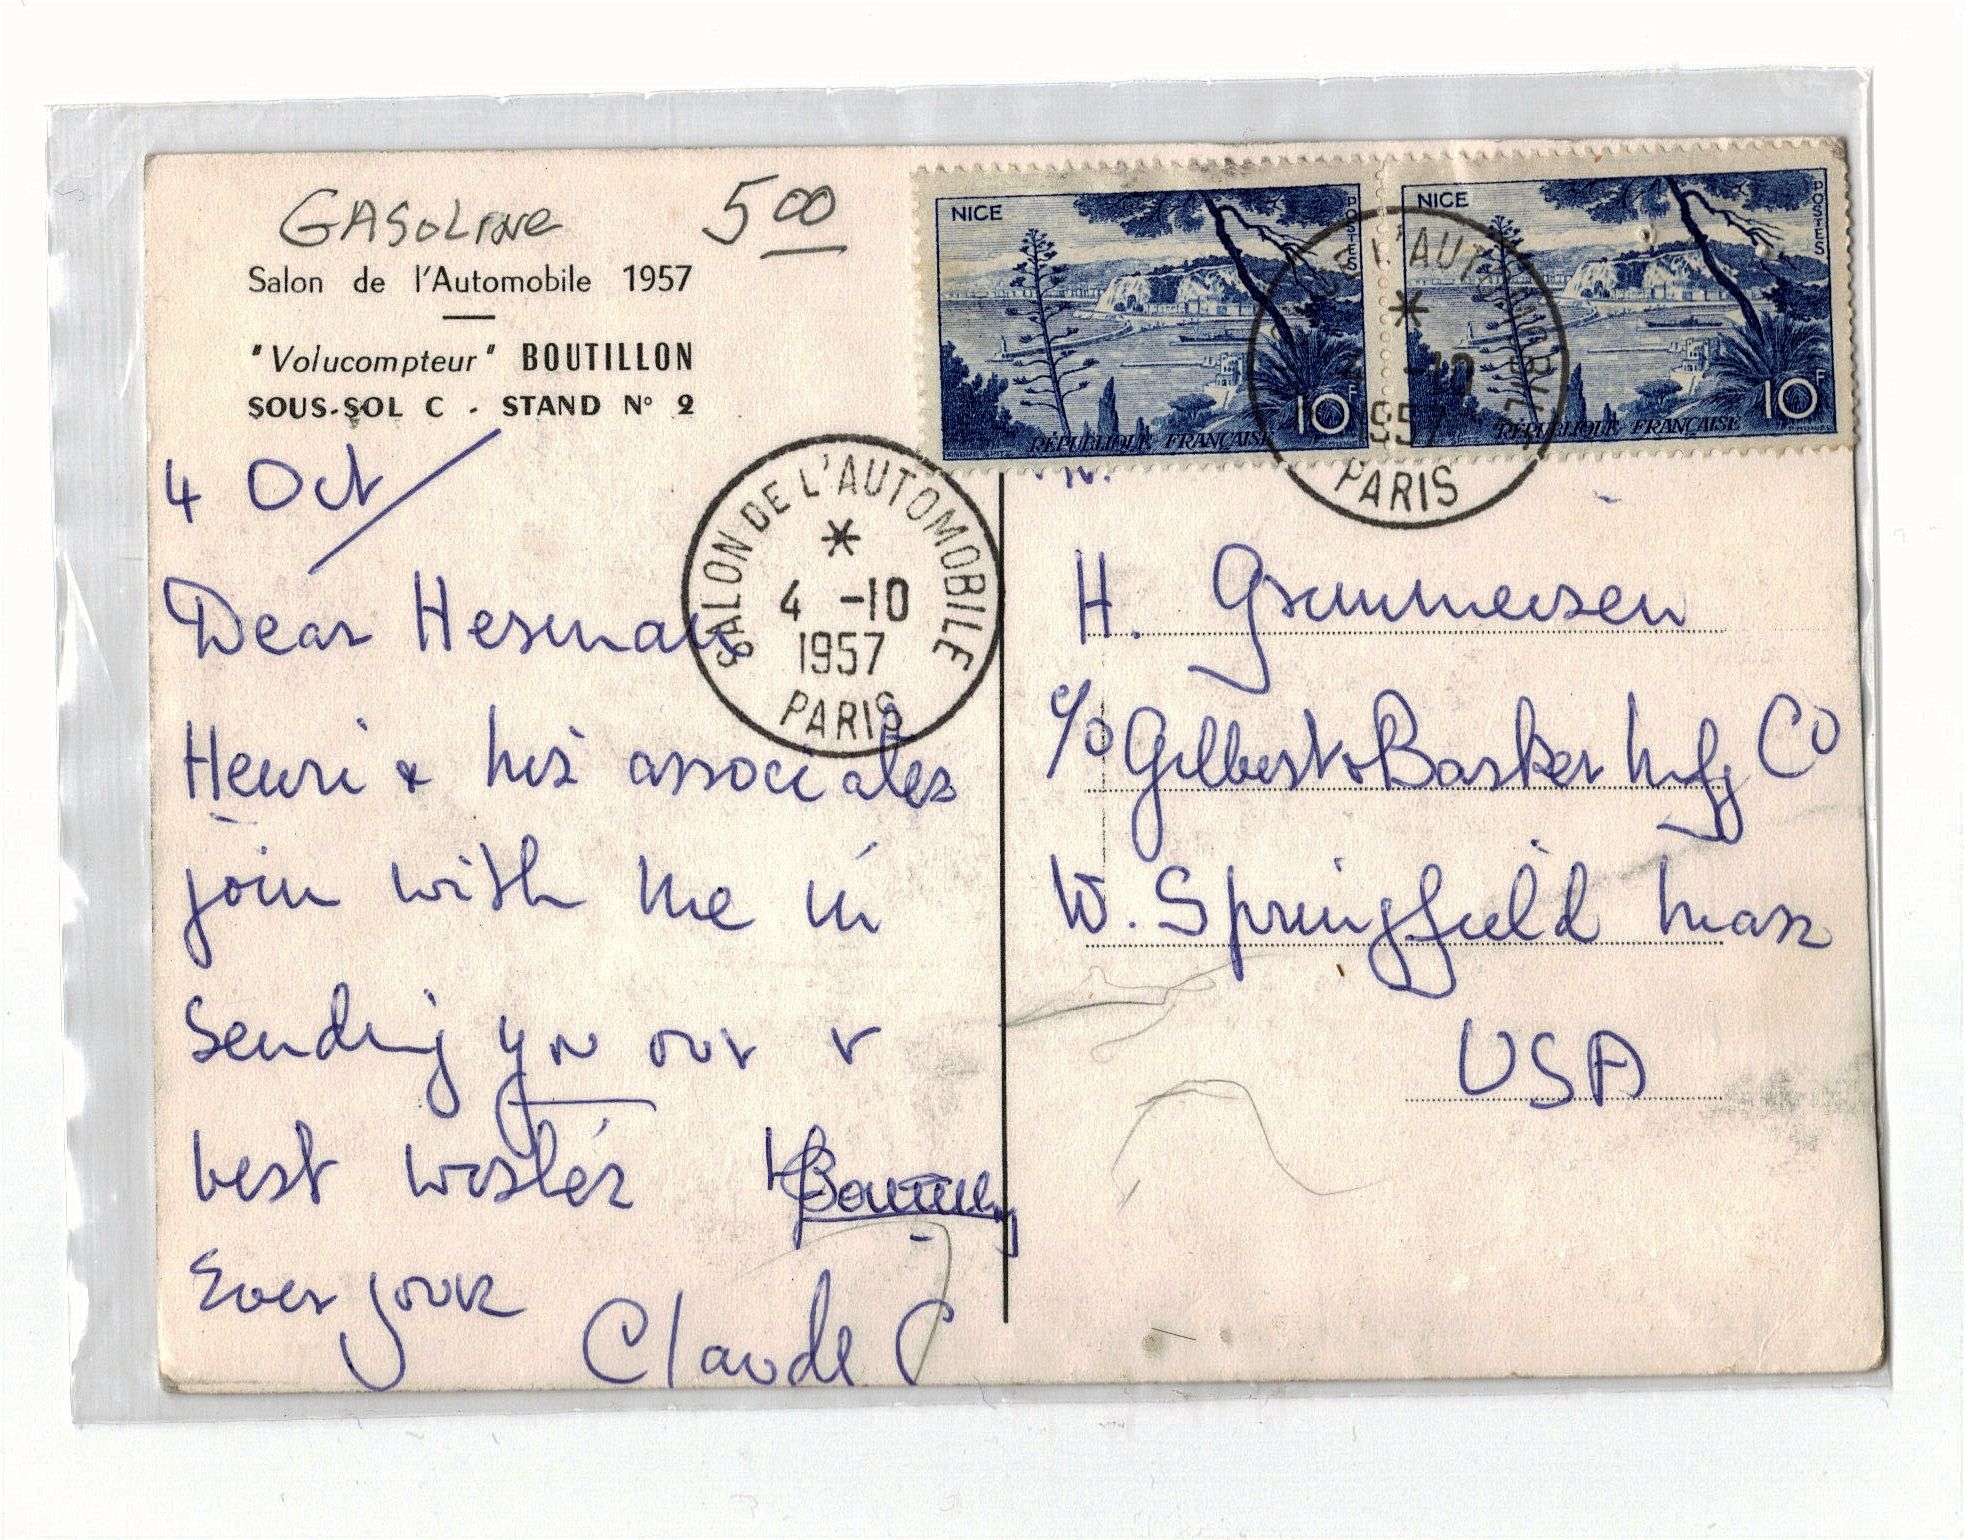 GASOLINE 5 00
Salon de l'Automobile 1957
"Volucompteur" BOUTILLON
SOUS-SOL C - STAND N° 2
4 Oct
Dear Herman
Henri & his associates
join with me in
sending you our v
best wishes
Ever yours
Claude C
NICE
POSTES
10F
RÉPUBLIQUE FRANÇAISE
NICE
POSTES
10F
RÉPUBLIQUE FRANÇAISE
SALON DE L'AUTOMOBILE
4 -10
1957
PARIS
L'AUTOMOBILE
-10
1957
PARIS
H.
c/o Gilbert & Barker Mfg Co
W. Springfield Mass
USA